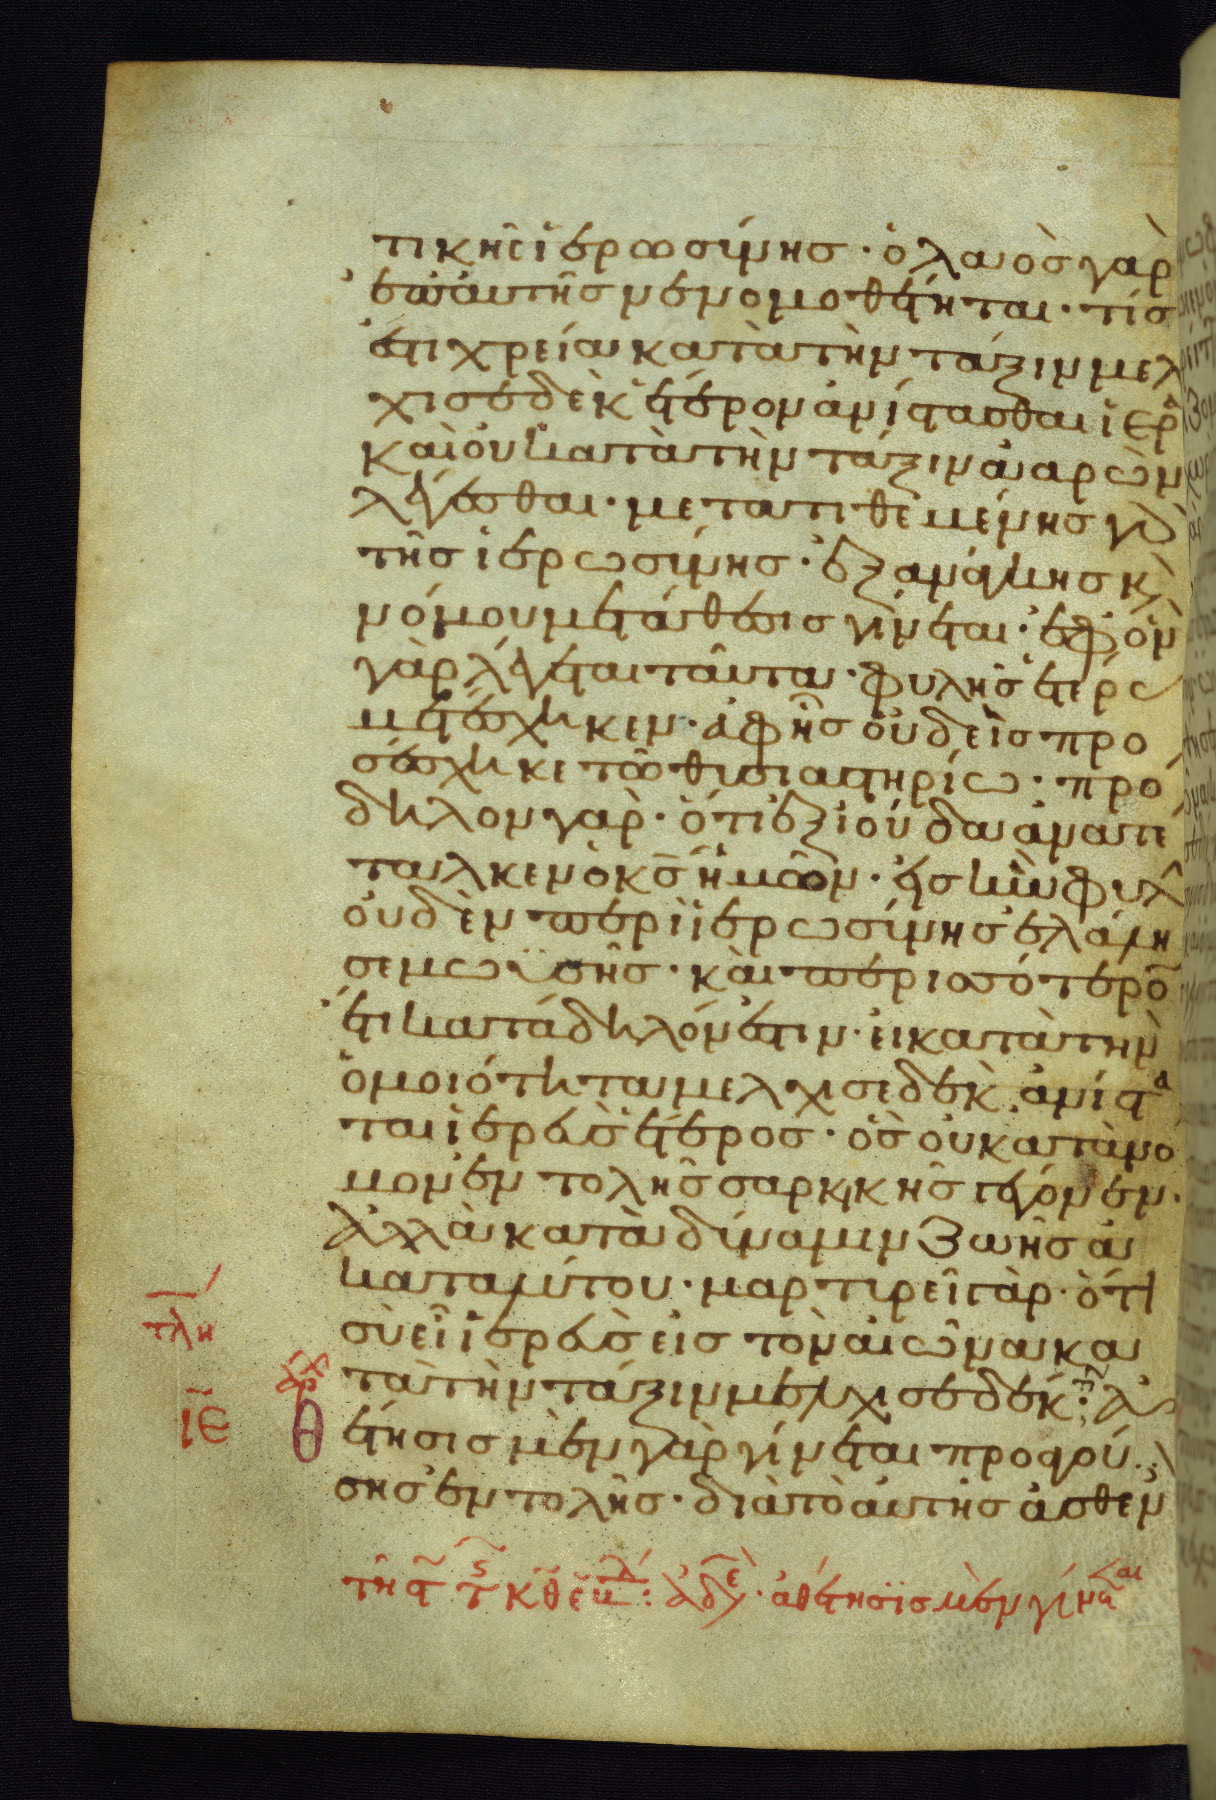 τικῆς ἱερωσύνης · ὁ λαὸς γὰρ
ἐπ' αὐτῆς νενομοθέτηται · τίς
ἔτι χρεία κατὰ τὴν τάξιν μελ
χισεδὲκ ἕτερον ἀνίστασθαι ἱερ
καὶ οὐ κατὰ τὴν τάξιν ἀαρὼν
λέγεσθαι · μετατιθεμένης γὰρ
τῆς ἱερωσύνης · ἐξ ἀνάγκης κ
νόμου μετάθεσις γίνεται · ἐφ ὃν
γὰρ λέγεται ταῦτα · φυλῆς ἑτέρα
μετέσχηκεν · ἀφ ἧς οὐδεὶς προ
σέσχηκε τῶ θυσιαστηρίω · πρό
δηλον γὰρ · ὅτι ἐξ ἰούδα ἀνατέ
ταλκεν ὁ κς ἡμῶν · εἰς ἣν φυλ
οὐδὲν περὶ ἱερωσύνης ἐλάλη
σε μωϋσῆς · καὶ περισσότερο
ἔτι κατάδηλόν ἐστιν · εἰ κατὰ τὴν
ὁμοιότητα μελχισεδὲκ ἀνίστα
ται ἱερεὺς ἕτερος · ὃς οὐ κατὰ νό
μον ἐντολῆς σαρκικῆς γέγονεν ·
ἀλλὰ κατὰ δύναμιν ζωῆς ἀ
καταλύτου · μαρτυρεῖ γὰρ · ὅτι
τλη
σὺ εἶ ἱερεὺς εἰς τὸν αἰῶνα κα
αρχ
τὰ τὴν τάξιν μελχισεδέκ · τλ ἀ
ιε θ
θέτησις μὲν γὰρ γίνεται προαγού
σης ἐντολῆς · διὰ τὸ αὐτῆς ἀσθεν
τῆ · κθ ἑβδ : ἀδε · ἀθέτησις μὲν γίνεται